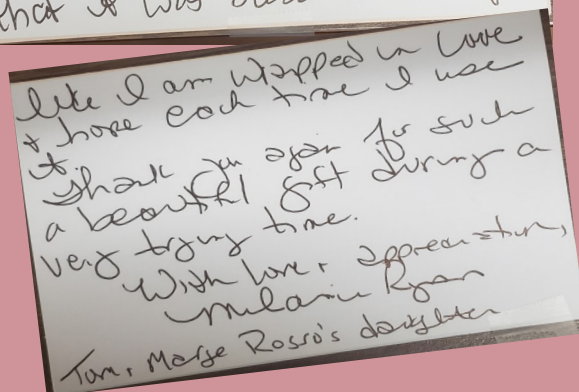 that it was
like I am wrapped in love
& hope each time I use
it.
Thank you again for such
a beautiful gift during a
very trying time.
With love & appreciation,
Melanie Ryan
Tom & Marge Rosso's daughter